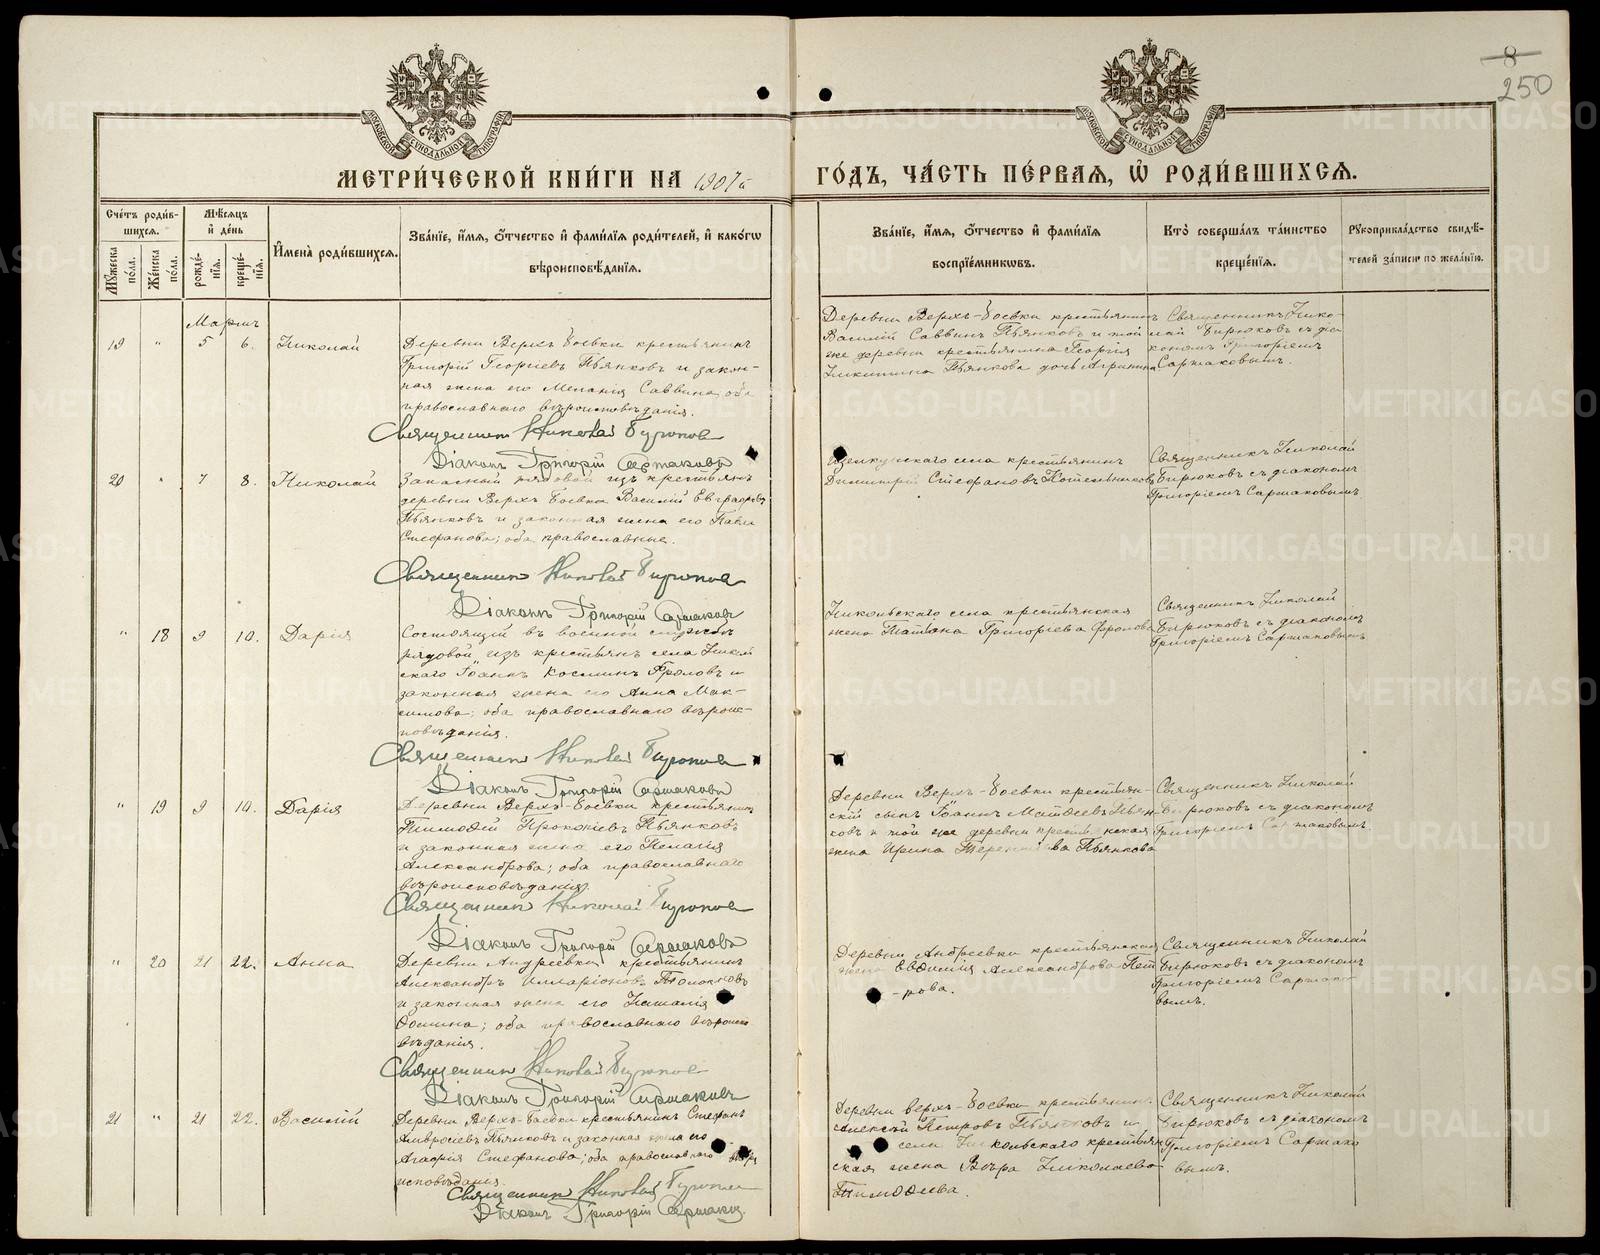 8
250
МОСКОВСКОЙ СѴНОДАЛЬНОЙ ТИПОГРАФІИ
МОСКОВСКОЙ СѴНОДАЛЬНОЙ ТИПОГРАФІИ
МЕТРИ́ЧЕСКОЙ КНИ́ГИ НА 1907й
ГО́ДЪ, ЧА́СТЬ ПЕ́РВАЯ, Ѡ҆ РОДИ́ВШИХСЯ.
Сче́тъ роди́в-
шихся.
Мꙋжеска по́ла.
Же́нска по́ла.
Мѣ́сяцъ
и҆ де́нь
рожде́-
нїя.
креще́-
нїя.
И҆мена̀ роди́вшихся.
Зва́нїе, и҆́мя, ѻ҆́тчество и҆ фами́лїя роди́телей, и҆ како́гѡ
вѣроисповѣ́данїя.
Зва́нїе, и҆́мя, ѻ҆́тчество и҆ фами́лїя
воспрїе́мникѡвъ.
Кто̀ соверша́лъ та́инство
креще́нїя.
Рꙋкоприкла́дство свидѣ́-
телей за́писи по жела́нїю.
Мартъ
19 " 5 6. Николай
Деревни Верхъ-Боевки крестьянинъ
Григорій Георгіевъ Пьянковъ и закон-
ная жена его Меланія Саввина; оба
православнаго вѣроисповѣданія.
Священникъ Николай Бирюковъ
Діаконъ Григорій Саржаковъ
Деревни Верхъ-Боевки крестьянинъ
Василій Саввинъ Пьянковъ и той
же деревни крестьянина Георгія
Никитина Пьянкова дочь Агрипина
Священникъ Нико-
лай Бирюковъ съ діа-
кономъ Григоріемъ
Саржаковымъ.
20 " 7 8. Николай
Запасный рядовой изъ крестьянъ
деревни Верхъ-Боевки Василій Евграфовъ
Пьянковъ и законная жена его Павла
Стефанова; оба православные.
Священникъ Николай Бирюковъ
Діаконъ Григорій Саржаковъ
села крестьянинъ
Димитрій Стефановъ Котельниковъ
Священникъ Николай
Бирюковъ съ діакономъ
Григоріемъ Саржаковымъ
" 18 9 10. Дарія
Состоящій въ военной службѣ
рядовой изъ крестьянъ села Николь
скаго Іоаннъ Косминъ Фроловъ и
законная жена его Анна Мак-
симова; оба православнаго вѣроис-
повѣданія.
Священникъ Николай Бирюковъ
Діаконъ Григорій Саржаковъ
Никольскаго села крестьянская
жена Татіана Григорьева Фролова
Священникъ Николай
Бирюковъ съ діакономъ
Григоріемъ Саржаковымъ
" 19 9 10. Дарія
Деревни Верхъ-Боевки крестьянинъ
Тимофей Прокопіевъ Пьянковъ
и законная жена его Пелагія
Александрова; оба православнаго
вѣроисповѣданія.
Священникъ Николай Бирюковъ
Діаконъ Григорій Саржаковъ
Деревни Верхъ-Боевки крестьян-
скій сынъ Іоаннъ Матѳеевъ Пьян
ковъ и той же деревни крестьянская
жена Ирина Терентьева Пьянкова
Священникъ Николай
Бирюковъ съ діакономъ
Григоріемъ Саржаковымъ
" 20 21 22. Анна
Деревни Андреевки крестьянинъ
Александръ Илларіоновъ Толокновъ
и законная жена его Наталія
Ѳомина; оба православнаго вѣроиспо
вѣданія.
Священникъ Николай Бирюковъ
Діаконъ Григорій Саржаковъ
Деревни Андреевки крестьянская
жена Евдокія Александрова Пет
-рова.
Священникъ Николай
Бирюковъ съ діакономъ
Григоріемъ Саржако-
вымъ.
21 " 21 22. Василій
Деревни Верхъ-Боевки крестьянинъ Стефанъ
Амвросіевъ Пьянковъ и законная жена его
Агафія Стефанова; оба православнаго вѣро
исповѣданія.
Священникъ Николай Бирюковъ
Діаконъ Григорій Саржаковъ.
Деревни Верхъ-Боевки крестьянинъ
Алексѣй Петровъ Пьянковъ и
села Никольскаго крестьян
ская жена Вѣра Николаева
Тимоѳеева.
Священникъ Николай
Бирюковъ съ діакономъ
Григоріемъ Саржако
вымъ.
METRIKI.GASO-URAL.RU